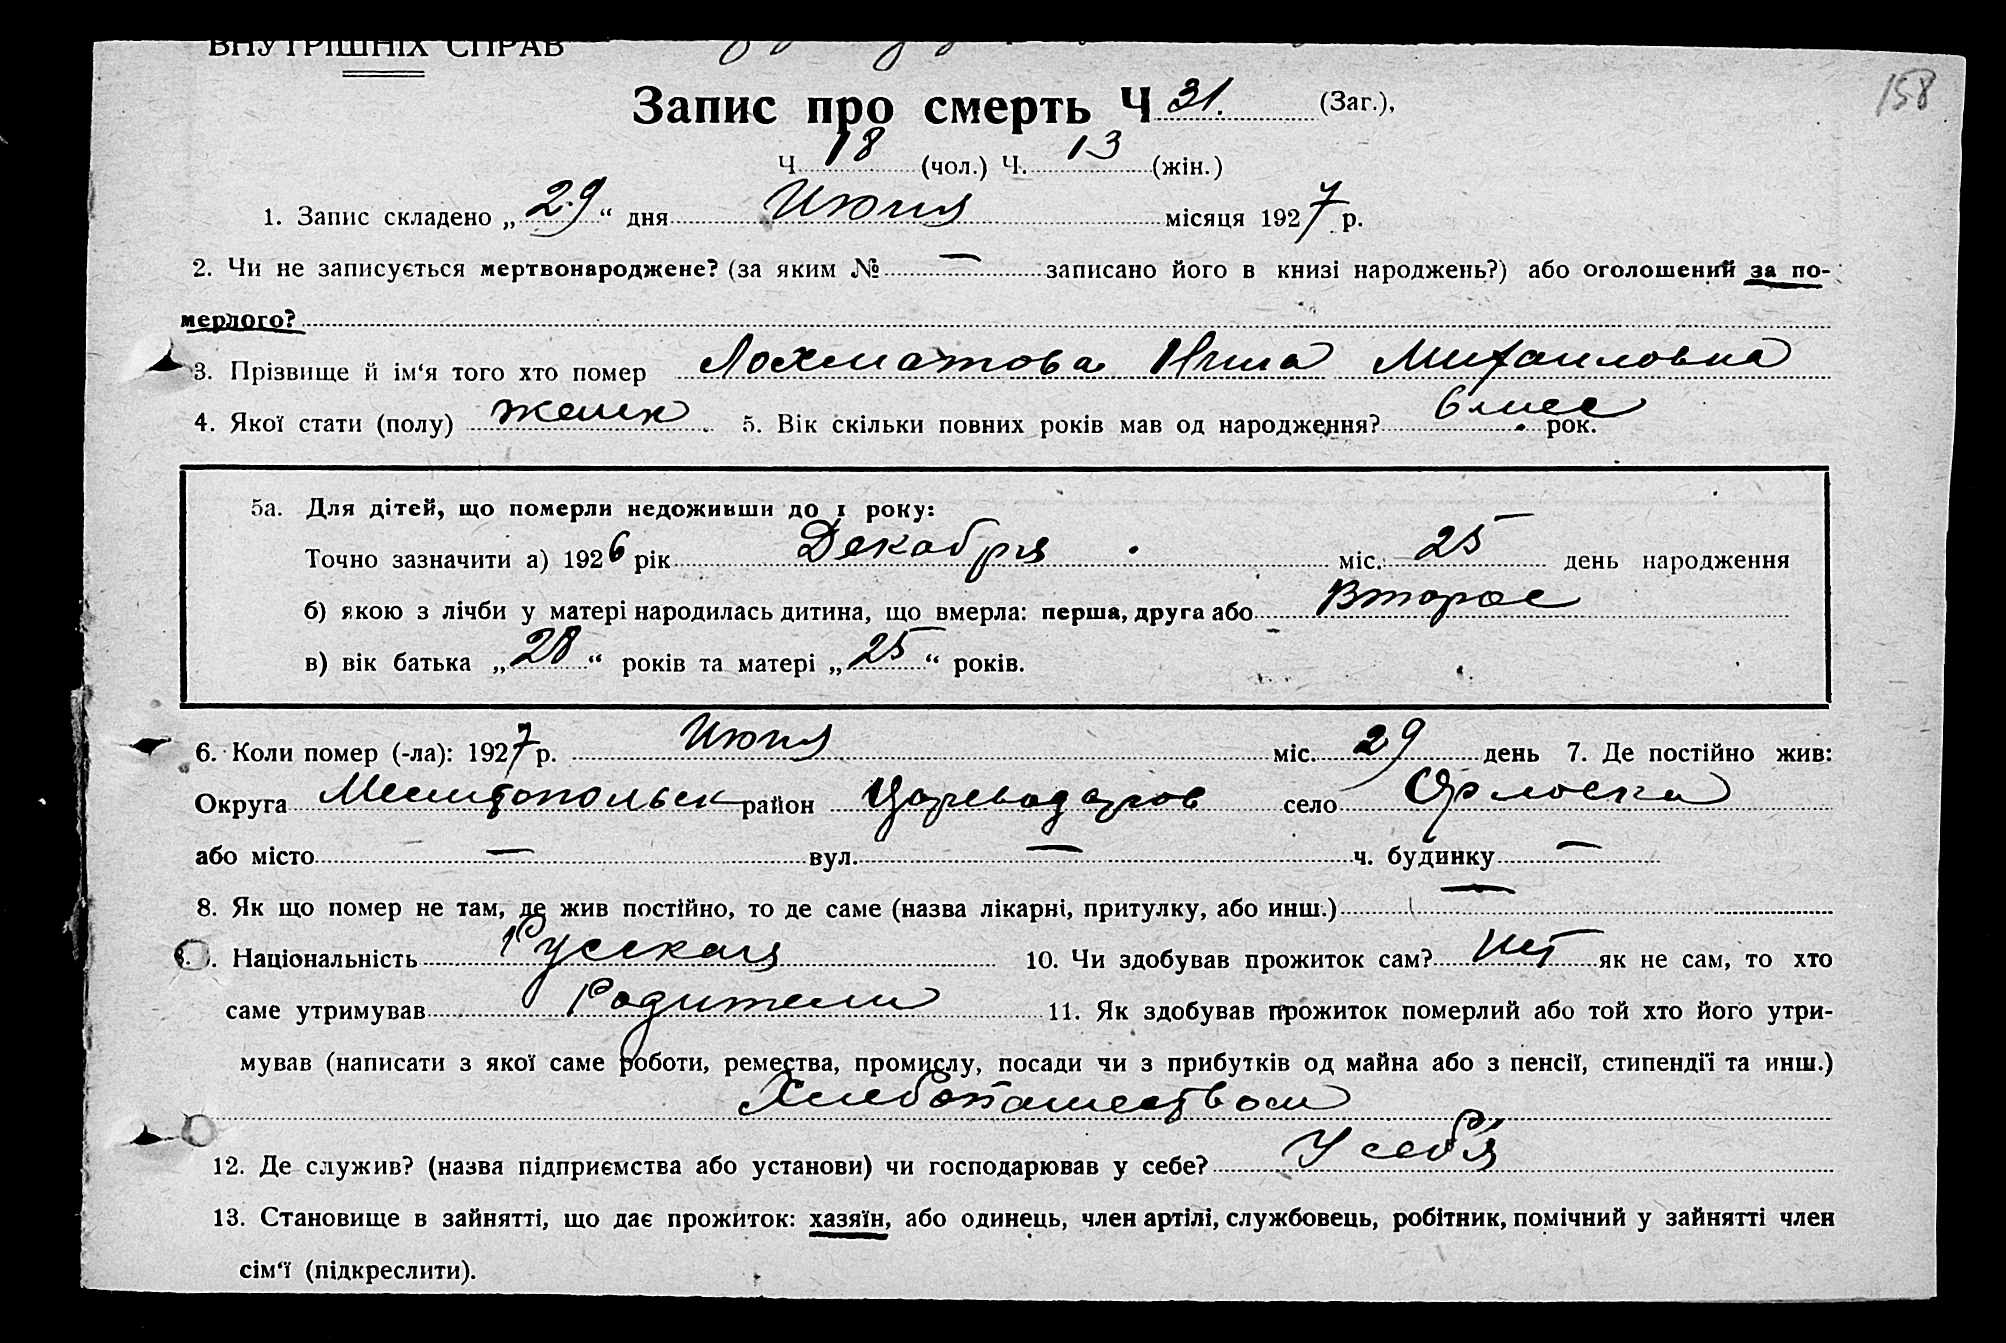 ВНУТРІШНІХ СПРАВ
158
Запис про смерть Ч 31. (Заг.),
Ч. 18 (чол.) Ч. 13 (жін.)
1. Запис складено „29“ дня Июня місяця 1927 р.
2. Чи не записується мертвонароджене? (за яким № — записано його в книзі народжень?) або оголошений за по-
мерлого?
3. Прізвище й ім‘я того хто помер Лохматова Нина Михаиловна
4. Якої стати (полу) женск 5. Вік скільки повних років мав од народження? 6 мес рок.
5а. Для дітей, що померли недоживши до 1 року:
Точно зазначити а) 1926 рік Декабря міс. 25 день народження
б) якою з лічби у матері народилась дитина, що вмерла: перша, друга або Второе
в) вік батька „28“ років та матері „25“ років.
6. Коли помер (-ла): 1927 р. Июня міс. 29 день 7. Де постійно жив:
Округа Мелитопольск район село
або місто — вул. — ч. будинку —
8. Як що помер не там, де жив постійно, то де саме (назва лікарні, притулку, або инш.) —
Національність Русская 10. Чи здобував прожиток сам? Нет як не сам, то хто
саме утримував Родители 11. Як здобував прожиток померлий або той хто його утри-
мував (написати з якої саме роботи, ремества, промислу, посади чи з прибутків од майна або з пенсії, стипендії та инш.)
Хлебопашеством
12. Де служив? (назва підприємства або установи) чи господарював у себе? У себя
13. Становище в зайнятті, що дає прожиток: хазяїн, або одинець, член артілі, службовець, робітник, помічний у зайнятті член
сім‘ї (підкреслити).